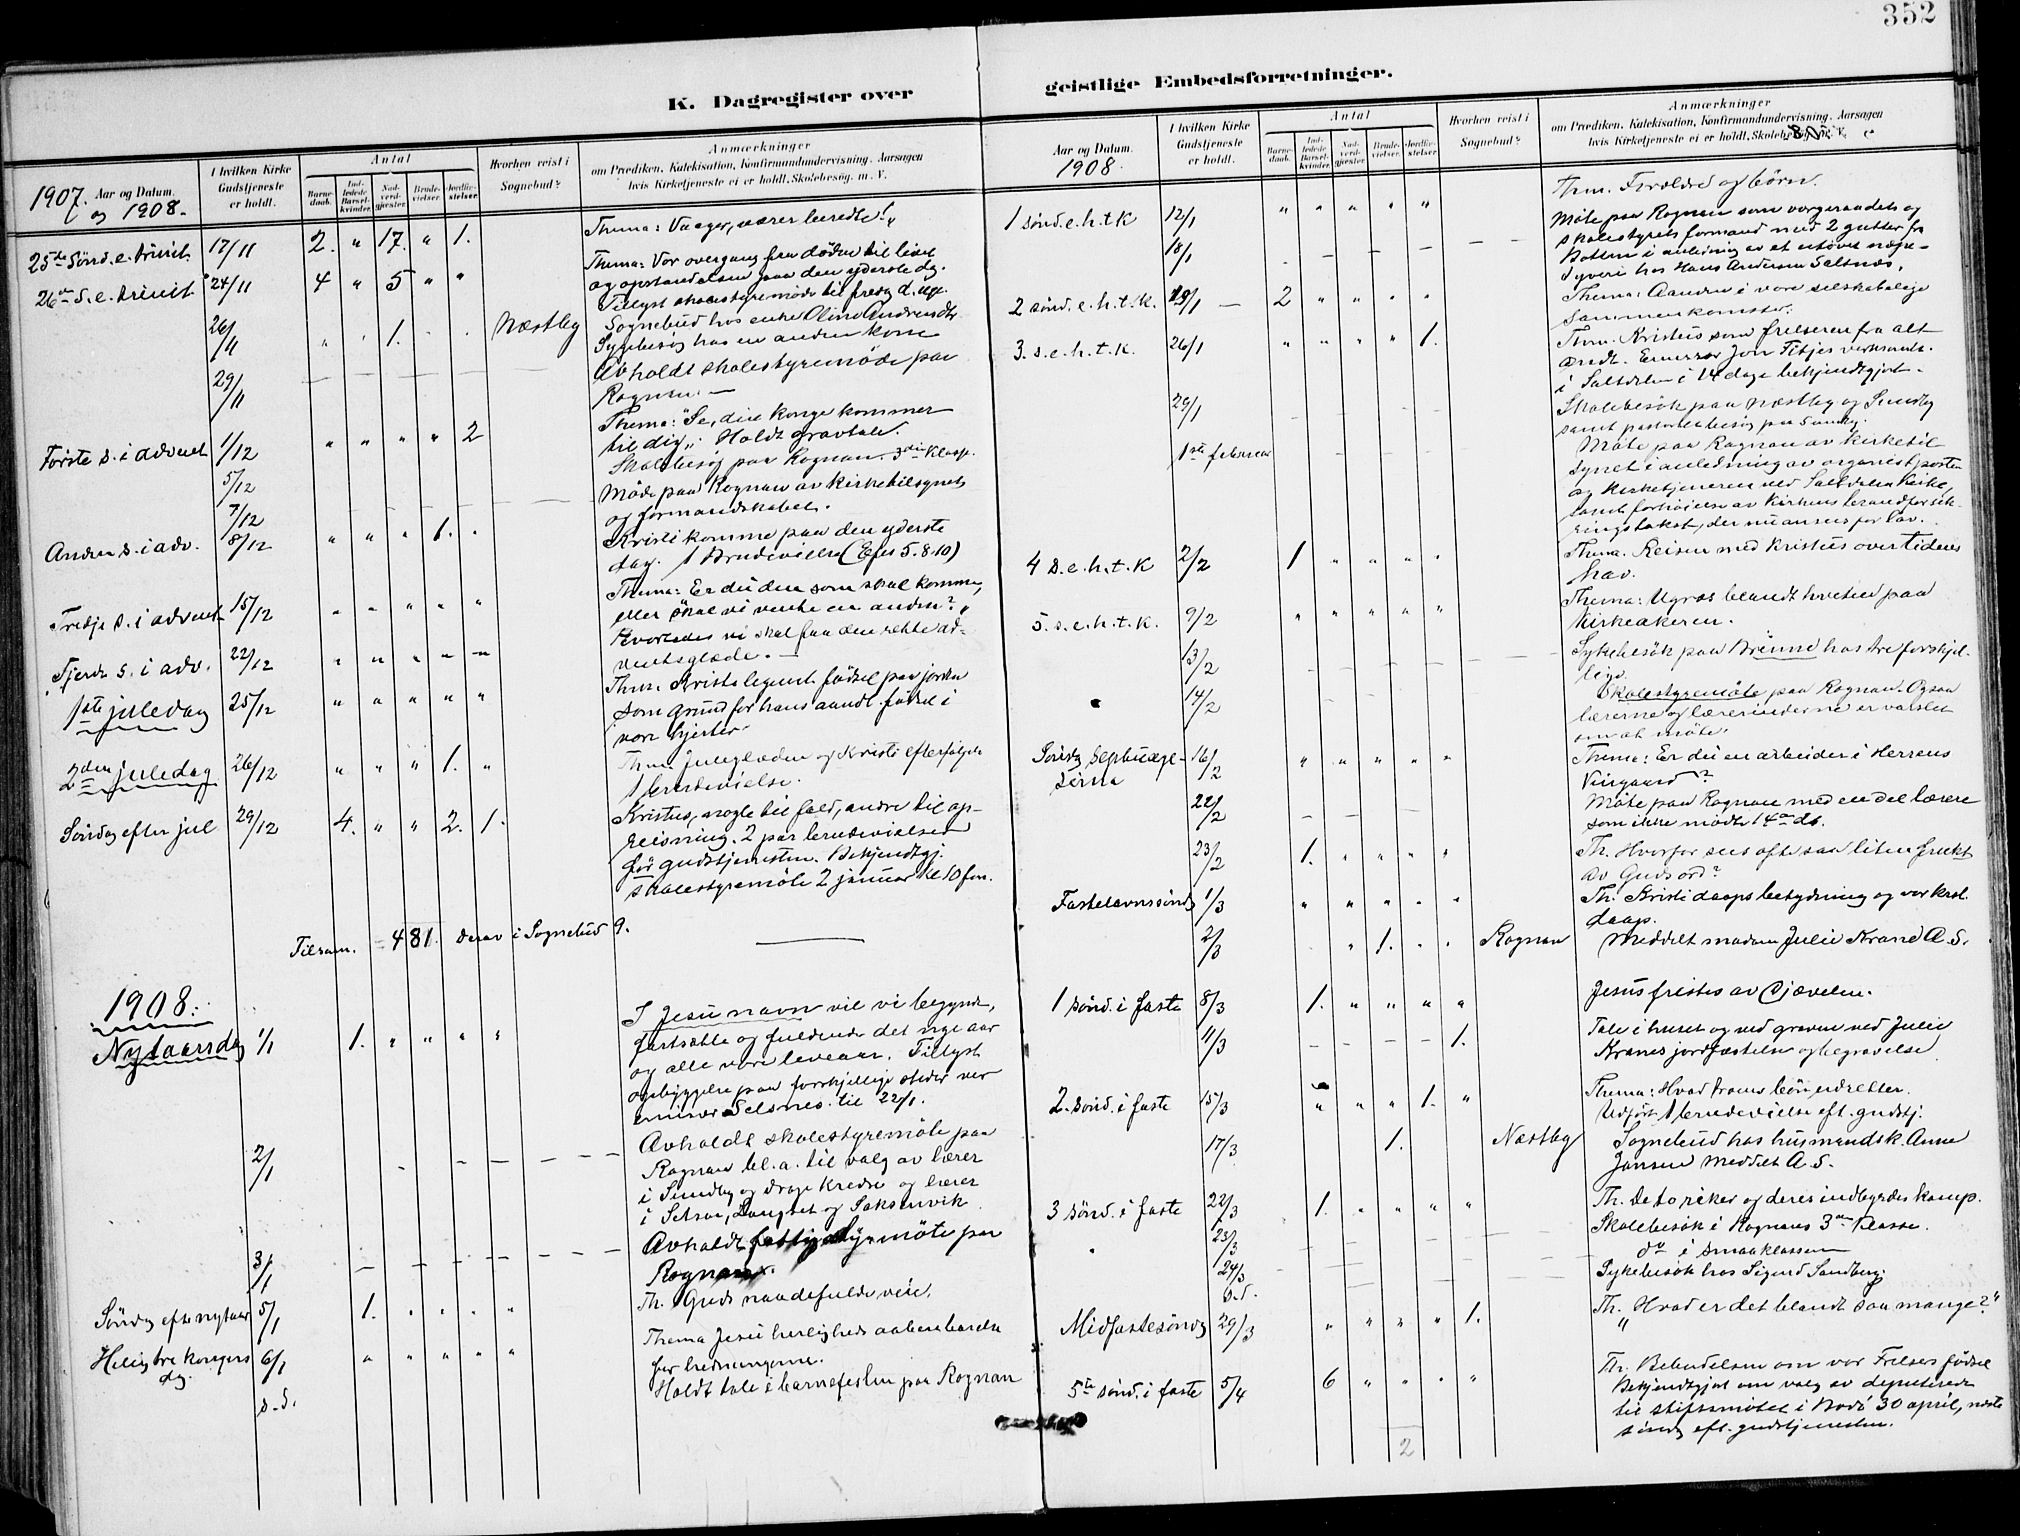 352
K. Dagregister over
1907. Aar og Datum.
og 1908.
I hvilken Kirke Gudstjeneste er holdt.
Antal
Barne-daab.
Ind-ledede Barsel-kvinder.
Nad-verd-gjester.
Brude-vielser.
Jordfæ-stelser.
Hvorhen reist i Sognebud?
Anmærkninger
om Prædiken, Katekisation, Konfirmandundervisning, Aarsagen
hvis Kirketjeneste ei er holdt, Skolebesøg. m. V.
25de Sönd. e. trinit. 17/11 2. " 17. " 1. Thema: Vaager, værer beredte!"
26de S. e. trinit. 24/11 4 " 5 " " Thema: Vor overgang fra döden til livet
og opstandelsen paa den yderste dag.
Tillyst skolestyremöde til fredag
26/11 " " 1. Næstby Sognebud hos enke Oline Andreasdtr
Sygebesög hos en anden kone
29/11 Avholdt skolestyremöde paa
Rognan. —
Förste s. i advent 1/12 " " " " 2 Thema: "Se, din konge kommer
til dig". Holdt gravtale.
5/12 Skolebesög paa Rognan. 3die Klasse.
7/12 Möde paa Rognan av kirketilsynet
og formandskabet.
Anden s. i adv. 8/12 " " " 1. " Kristi komme paa den yderste
dag. 1 Brudevielse (Efes 5. 8-10)
Tredje s. i advent 15/12 " " " " " Thema: Er du den som skal komme,
eller skal vi vente en anden?"
Fjerde s. i adv. 22/12 " " " " " Hvorledes vi skal faa den rette ad-
ventsglæde. —
1ste juledag 25/12 " " " " " Thm. Kristi legeml. födsel paa jorden
som grund for hans aandl. födsel i
vore hjerter
2den juledag 26/12 " " " 1. " Thm. juleglæden og Kristi efterfölgelse
1 brudevielse.
Söndag efter jul 29/12 4. " " 2. 1. Kristus, nogle til fald, andre til op-
reisning. 2 par brudevielser
för gudstjenesten. Bekjendtgj.
skolestyremöte 2 januar kl 10 fm.
Tilsam. = 481. derav i Sognebud 9.
1908.
Nytaarsdag 1/1 1. " " " " I Jesu navn vil vi begynde,
fortsætte og fuldende det nye aar
og alle vore leveaar. Tillyst
opbyggelse paa forskjellige steder ved
Selsnes. til 22/1.
2/1 Avholdt skolestyremöte paa
Rognan bl. a. til valg av lærer
i Sundby og Drage Kredse og lærer
i Setsaa, Langset og Saksenvik
3/1 Avholdt fattigstyremöte paa
Rognan.
Söndag efter nytaar 5/1 1. " " " " Th. Guds naadefulde veie.
Hellig tre kongers dag. 6/1 " " " " " Thema Jesu herligheds aabenbarelse
for hedningerne.
s. d. Holdt tale i barnefesten paa Rognan
geistlige Embedsforretninger.
Aar og Datum.
1908.
I hvilken Kirke Gudstjeneste er holdt.
Antal
Barne-daab.
Ind-ledede Barsel-kvinder.
Nad-verd-gjester.
Brude-vielser.
Jordfæ-stelser.
Hvorhen reist i Sognebud?
Anmærkninger
om Prædiken, Katekisation, Konfirmandundervisning, Aarsagen
hvis Kirketjeneste ei er holdt, Skolebesög. m. V.
1 sönd. e. h. t. K 12/1 " " " " " Thm. Forældre og börn.
18/1 Möte paa Rognan som vergeraadets og
skolestyrets formand med 2 gutter fra
Botten i anledning av et utövet
tyveri hos Hans Andersen Saltnes.
2 sönd. e. h. t. K. 19/1 — 2 " " " " Thema: Aanden i vore selskabelige
sammenkomster.
3. s. e. h. t. K. 26/1 " " " " 1. Thm. Kristus som frelseren fra alt
ondt. Emissær Jon Titjes virksomh.
i Saltdalen i 14 dage bekjendtgjort.
29/1 Skolebesök paa Næstby og Sundby
samt
1ste februar Möte paa Rognan av kirketil-
synet i anledning av organistposten
og kirketjeneren ved Saltdalen kirke,
samt forhöielse av kirkens brandforsik-
ringstakst, der nu ansees for lav.
4 s. e. h. t. K 2/2 1 " " " " Thema: Reisen med Kristus over tidens
hav.
5. s. e. h. t. K. 9/2 " " " " " Thema: Ugræs blandt hveten paa
kirkeakeren.
13/2 Sykebesök paa Brenne hos tre forskjel-
lige.
14/2 Skolestyremöte paa Rognan. Ogsaa
lærerne og lærerinderne er varslet
om at möte.
Söndag Septuage-sima 16/2 " " " " " Thema: Er du en arbeider i Herrens
Vingaard?
22/2 Möte paa Rognan med en del lærere
som ikke mödte 14de ds.
23/2 1. " " " " Th. Hvorfor sees ofte saa liten frukt
av Guds ord?
Fastelavnssönd. 1/3 " " " " " Th. Kristi daaps betydning og vor krist.
daap.
2/3 " 1. " " Rognan Meddelt madam Julie Krane A. S.
1 sönd. i faste 8/3 1. " " " " Jesus fristes av Djævelen.
11/3 1. Tale i huset og ved graven ved Julie
Kranes jordfæstelse og begravelse
2. sönd. i faste 15/3 " " " 1. " Thema: Hvad troens bön utretter.
Utfört 1 brudevielse eft. gudstj.
17/3 1. Næstby Sognebud hos husmandsk. Anne
Jansen Meddelt A. S.
3 sönd. i faste 22/3 1. " " " " Th. De to riker og deres indbyrdes kamp.
23/3 Skolebesök i Rognans 3die Klasse.
24/3 do i smaaklassen
s. d. Sykebesök hos Sigurd Sandberg.
Midfastesöndag 29/3 " " " " 1. Th. "Hvad er det blandt saa mange?"
5te sönd. i faste 5/4 6 " " " " Th. Bebudelsen om vor Frelsers födsel
Bekjendtgjort om valg av deputerede
til stiftsmötet i Bodö 30 april, næste
söndag eft. gudstjenesten.
2